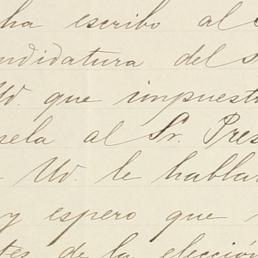 ha escribo al
ndidatura del
Ud. que impuest
sela al Sr. Pres
Ud. le habla
y espero que
tes de la elección